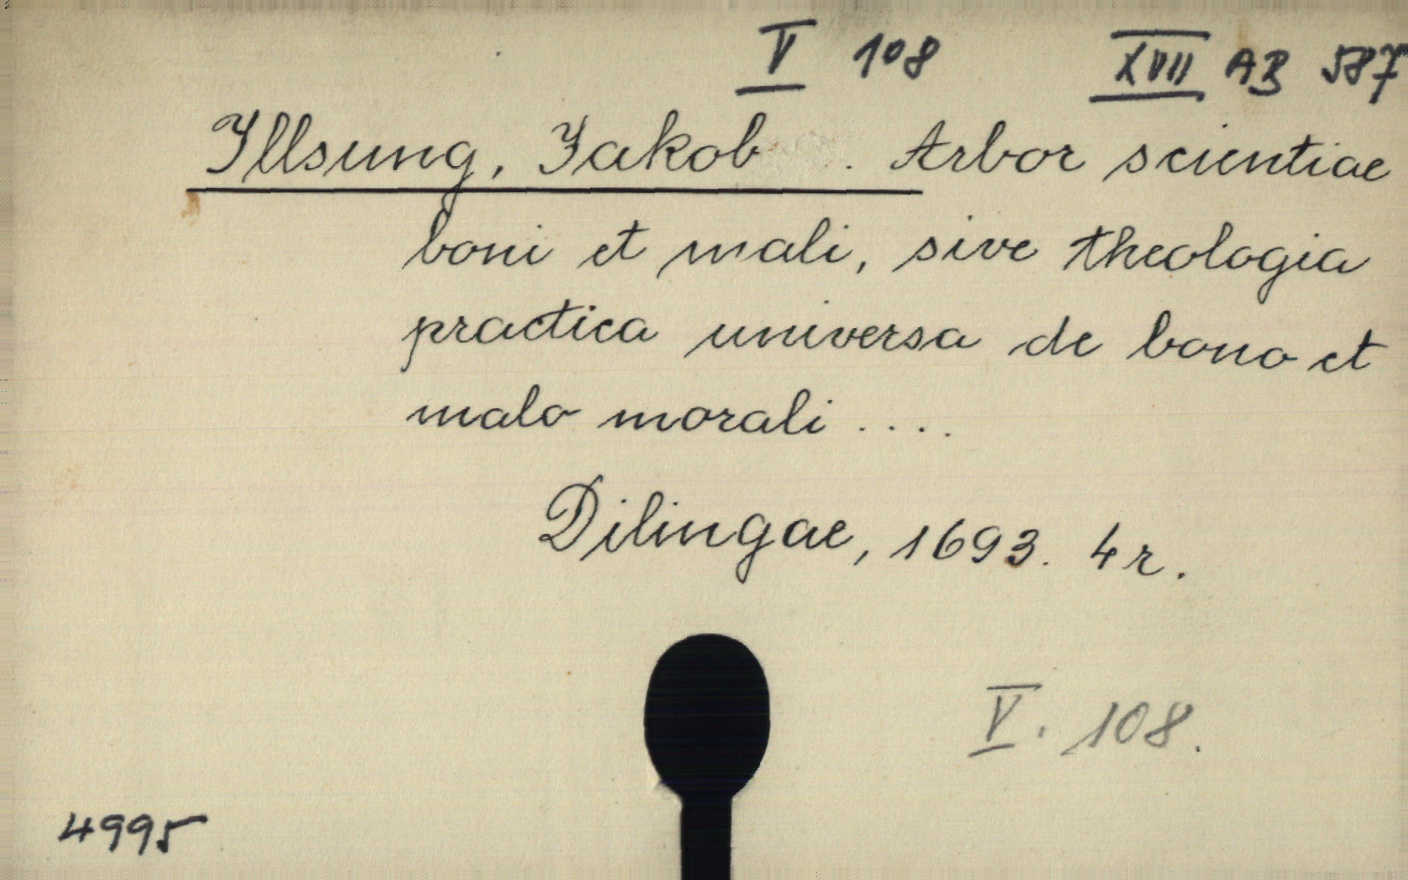 V 108 XVII AB 587
Illsung, Jakob . Arbor scientiae
boni et mali, sive theologia
practica universa de bono et
malo morali ....
Dilingae, 1693. 4r.
V. 108.
4995